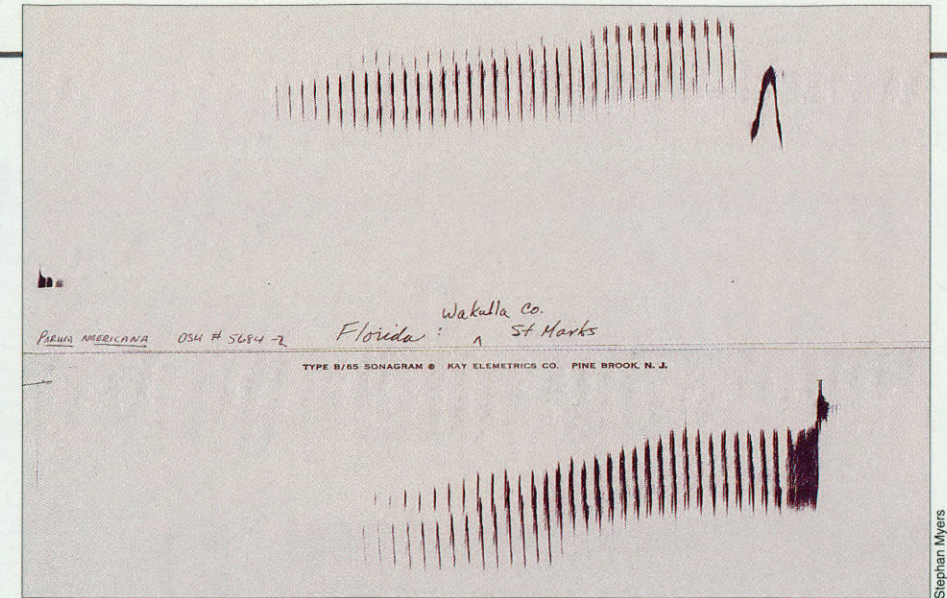 Wakulla Co.
PARULA AMERICANA OSU # 5684-2 Florida : ^ St Marks
TYPE B/65 SONAGRAM ® KAY ELEMETRICS CO. PINE BROOK, N. J.
Stephan Myers